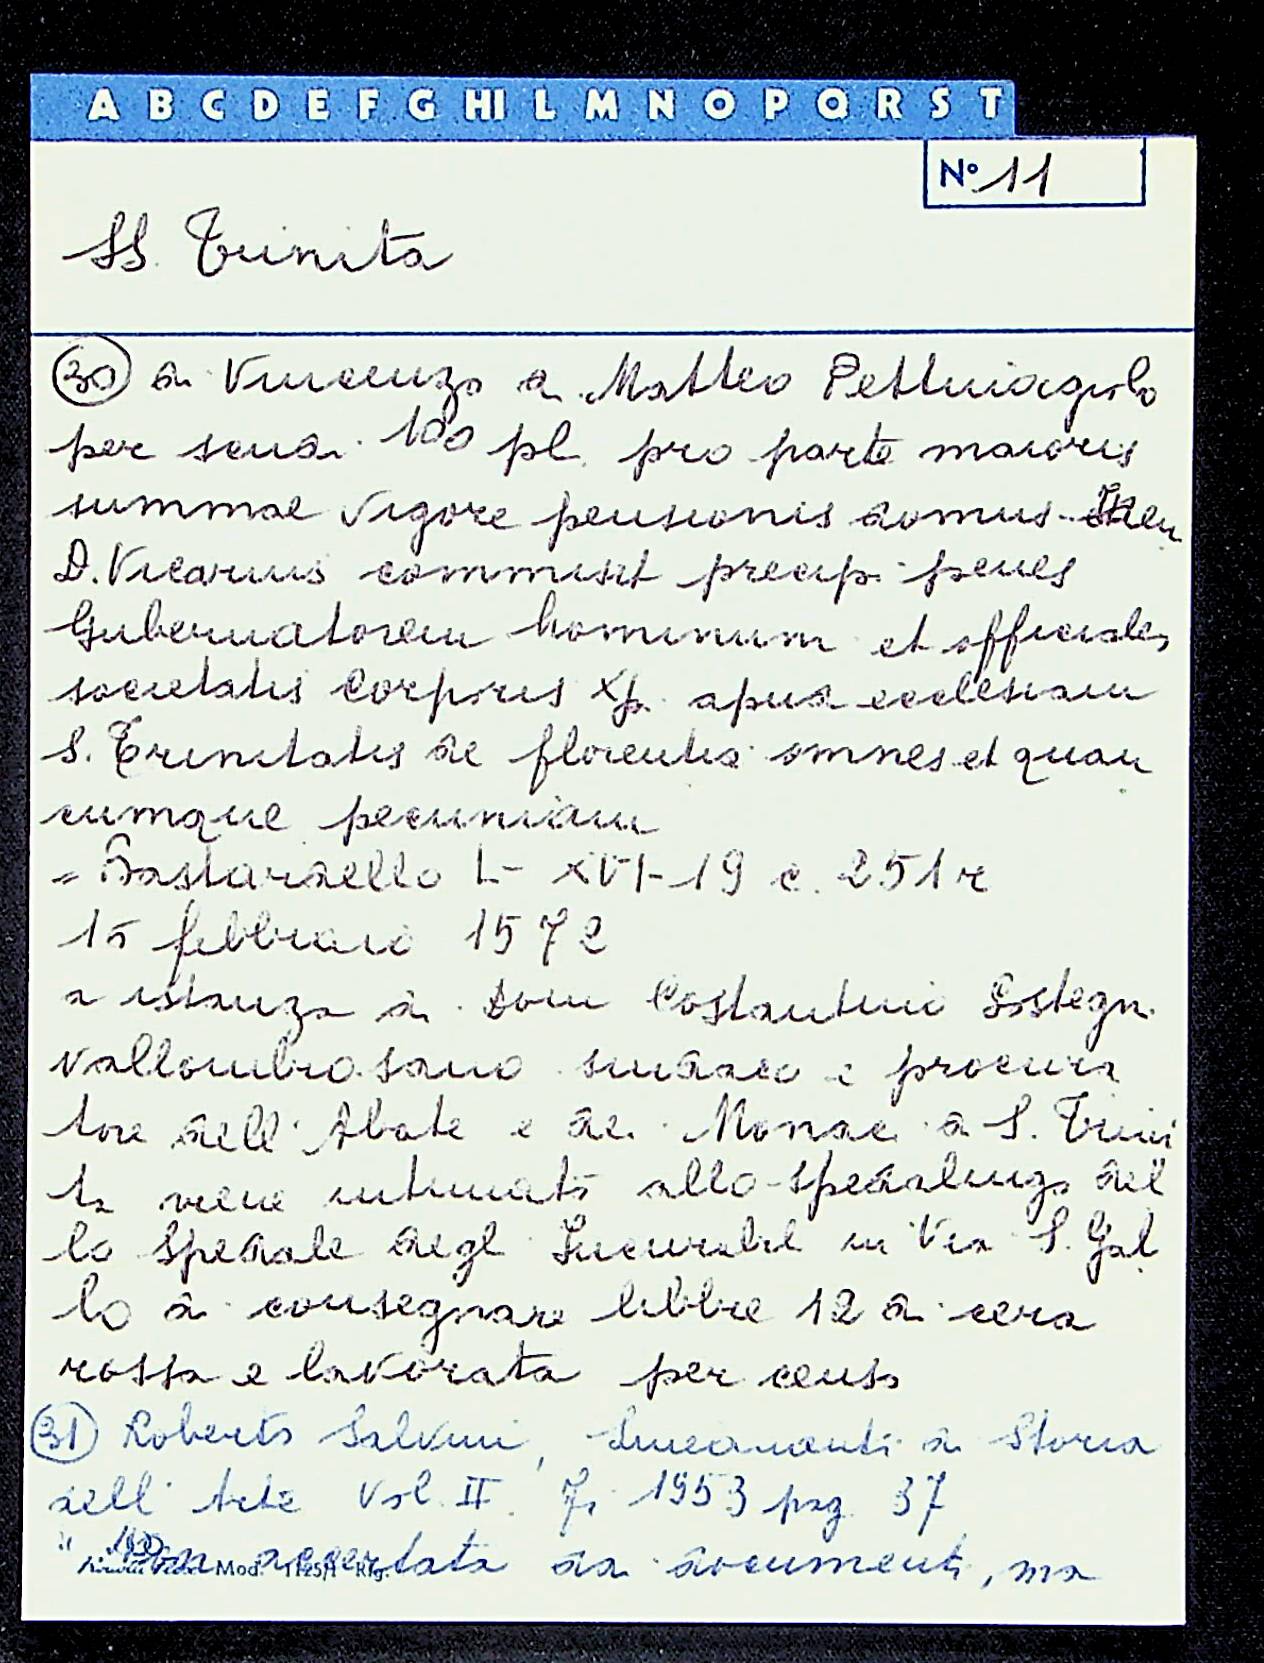 A B C D E F G HI L M N O P Q R S T
N° 11
SS. Trinita
30 di Vincenzo di Matteo Pettiniagnolo
per scudi 100 pl. pro parte maioris
summae vigore pensionis domus Item
D. Vicarius commisit precipi penes
Gubernatorem hominum et officiales
societatis Corporis Xp. apud ecclesiam
S. Trinitatis de florentia omnes et quan
cumque pecuniam
= Bastardello L- XVI-19 c. 251 r
15 febbraio 1572
a istanza di Dom Costantino Sostegni
vallombrosano sindaco e procura
tore dell'Abate e dei Monaci di S. Trini
ta viene intimato allo spedalingo del
lo Spedale degli Incurabili in Via S. Gal
lo di consegnare libbre 12 di cera
rossa e lavorata per censo
31 Roberto Salvini, Lineamenti di Storia
dell'Arte Vol. II Fi 1953 pag. 37
" accertata da documenti, ma
Mod.